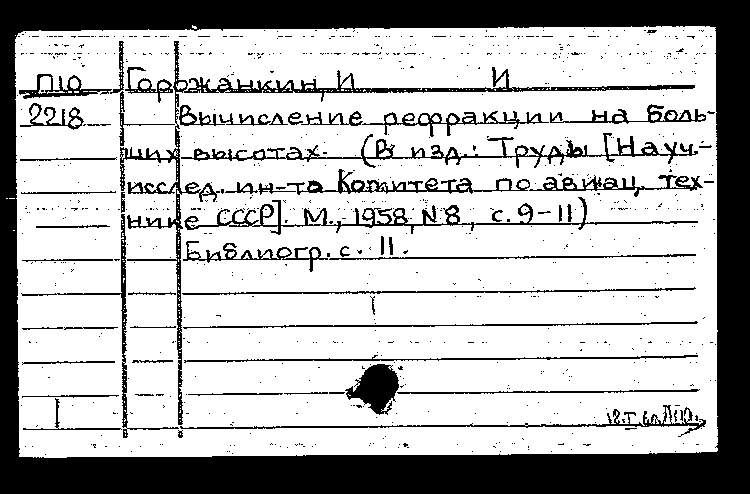 П10 Горожанкин, И И
2218 Вычисление рефракции на боль-
ших высотах. (В изд.: Труды [Науч.-
исслед. ин-та Комитета по авиац. тех-
нике СССР]. М., 1958, N 8, с. 9-11)
Библиогр. с. 11.